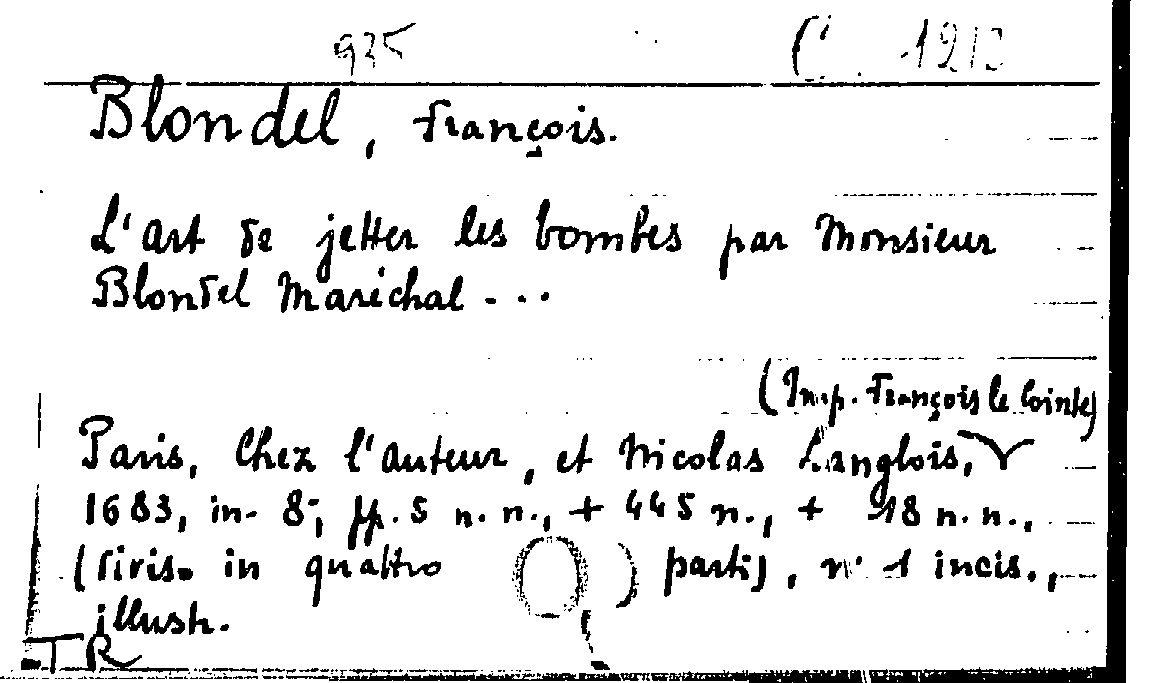 935 C. 1213
Blondel, François.
L'art de jetter les bombes par Monsieur
Blondel Maréchal - ...
(Imp. François le Cointe)
Paris, Chez l'auteur, et Nicolas Langlois,
1683, in-8°, pp. 5 n.n., + 445 n., + 18 n.n.,
(divis. in quattro parti), n° 1 incis.,
illustr.
TR